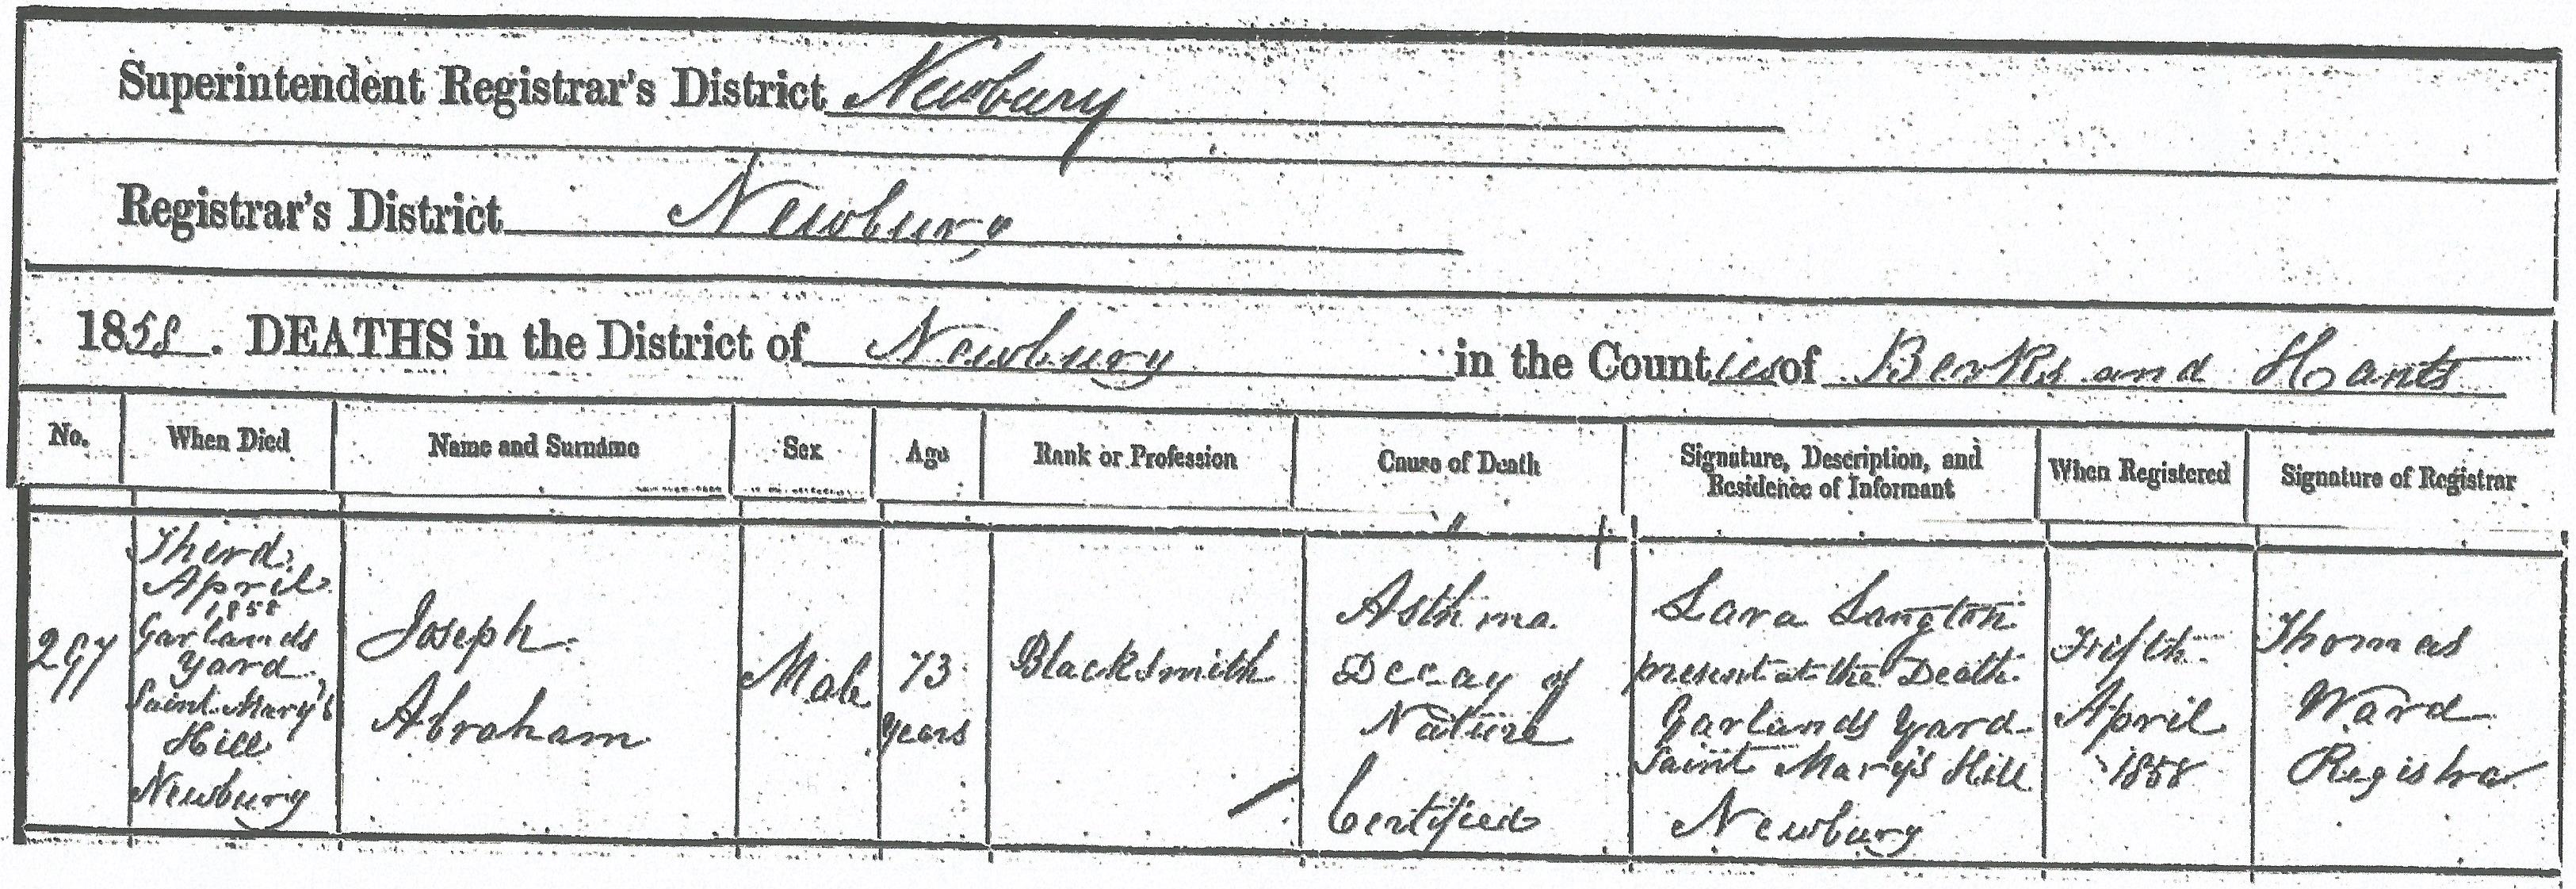 Superintendent Registrar's District Newbury
Registrar's District Newbury
1858. DEATHS in the District of Newbury in the Counties of Berks and Hants
No. When Died Name and Surname Sex Age Rank or Profession Cause of Death Signature, Description, and Residence of Informant When Registered Signature of Registrar
297
Third
April
1858
Garlands
Yard
Saint Mary's
Hill
Newbury
Joseph
Abraham
Male
73
years
Blacksmith
Asthma
Decay of
Nature
Certified
Sara Langton
present at the Death
Garlands Yard
Saint Mary's Hill
Newbury
Fifth
April
1858
Thomas
Ward
Registrar